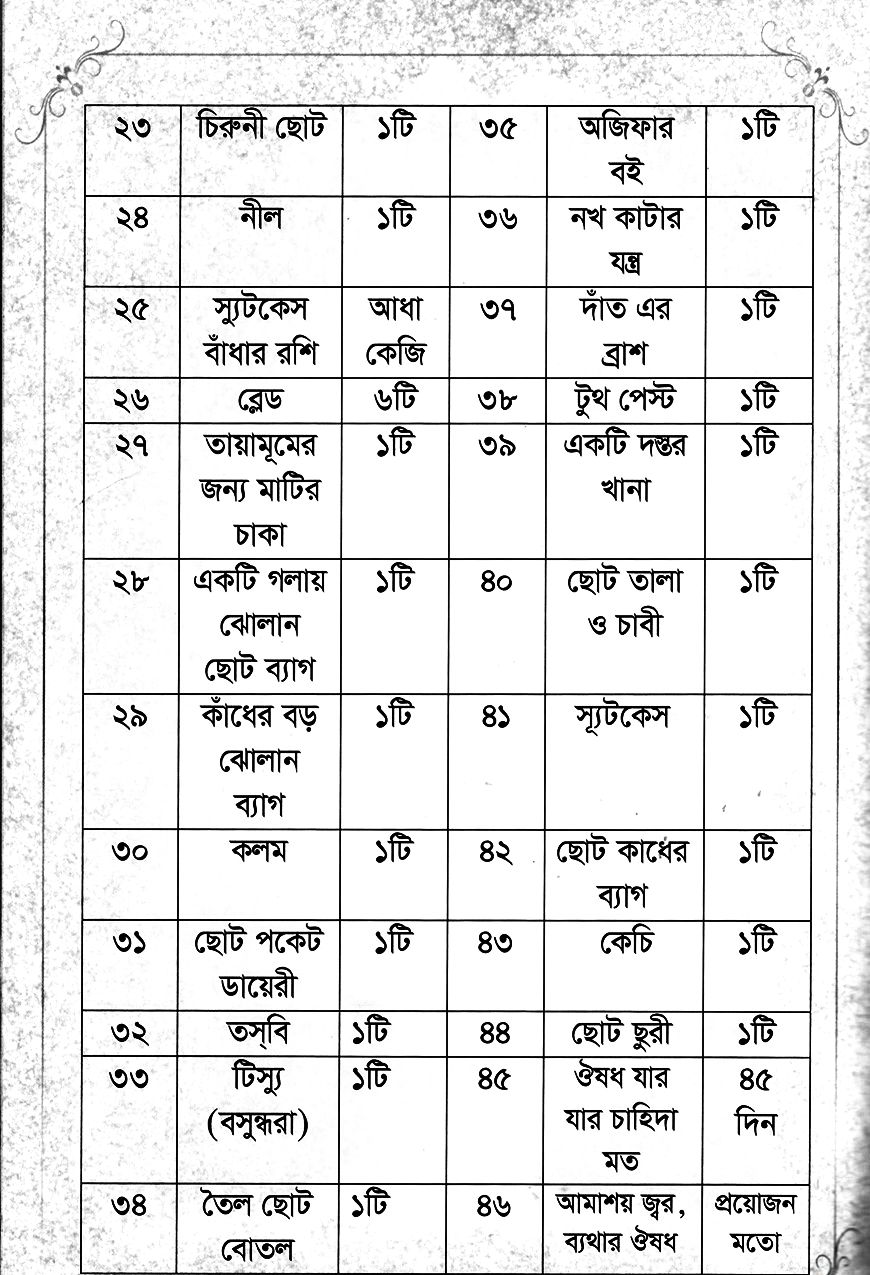 ২৩ চিরুনী ছোট ১টি ৩৫ অজিফার ১টি
বই
২৪ নীল ১টি ৩৬ নখ কাটার ১টি
যন্ত্র
২৫ স্যুটকেস আধা ৩৭ দাঁত এর ১টি
বাঁধার রশি কেজি ব্রাশ
২৬ ব্লেড ৬টি ৩৮ টুথ পেস্ট ১টি
২৭ তায়ামূমের ১টি ৩৯ একটি দস্তর ১টি
জন্য মাটির খানা
চাকা
২৮ একটি গলায় ১টি ৪০ ছোট তালা ১টি
ঝোলান ও চাবী
ছোট ব্যাগ
২৯ কাঁধের বড় ১টি ৪১ স্যূটকেস ১টি
ঝোলান
ব্যাগ
৩০ কলম ১টি ৪২ ছোট কাধের ১টি
ব্যাগ
৩১ ছোট পকেট ১টি ৪৩ কেচি ১টি
ডায়েরী
৩২ তস্‌বি ১টি ৪৪ ছোট ছুরী ১টি
৩৩ টিস্যু ১টি ৪৫ ঔষধ যার ৪৫
(বসুন্ধরা) যার চাহিদা দিন
মত
৩৪ তৈল ছোট ১টি ৪৬ আমাশয় জ্বর, প্রয়োজন
বোতল ব্যথার ঔষধ মতো